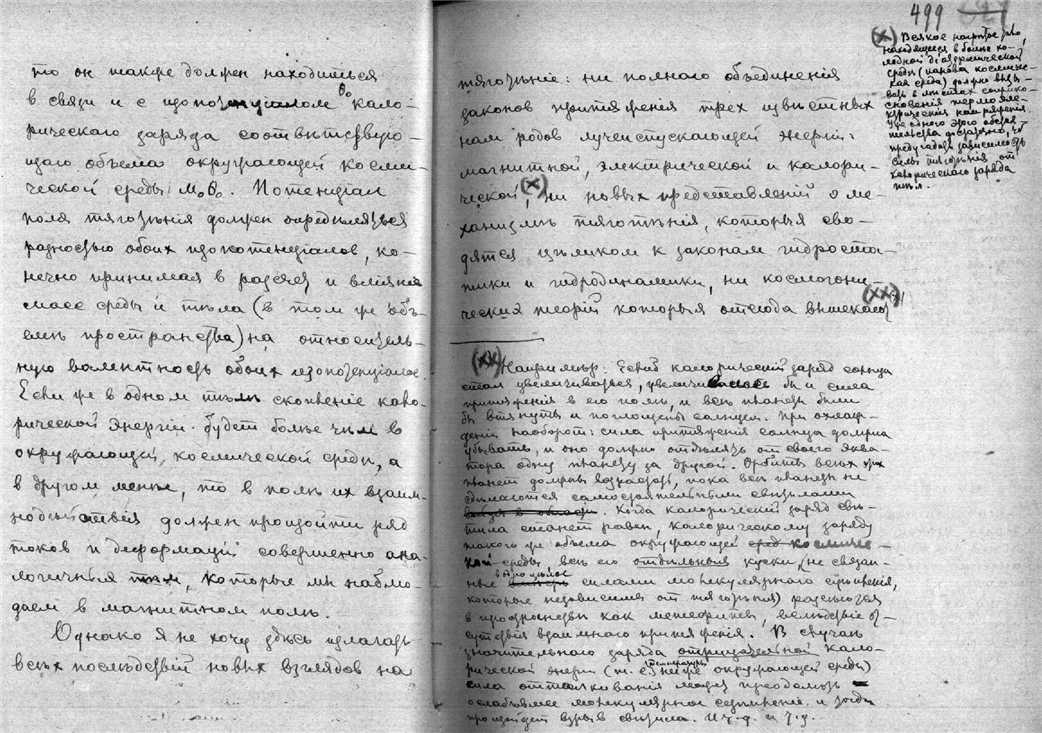 то он также должен находиться
в связи и с изопотенциалом θ₀ кало-
рическаго заряда соотвѣтствую-
щаго объема окружающей косми-
ческой среды M₀θ₀. Потенціал
поля тяготѣнія должен опредѣляться
разностью обоих изопотенціалов, ко-
нечно принимая в разсчет и вліяніе
масс среды и тѣла (в том же объ-
емѣ пространства) на относитель-
ную валентность обоих изопотенціалов.
Если же в одном тѣлѣ скопленіе кало-
рической энергіи будет болѣе чѣм в
окружающей, космической среды, а
в другом менѣе, то в полѣ их взаим-
нодѣйствія должен произойти ряд
токов и деформацій совершенно ана-
логичныя тѣм, которые мы наблю-
даем в магнитном полѣ.
Однако я не хочу здѣсь излагать
всѣх послѣдствій новых взглядов на
499
тяготѣніе: ни полнаго объединенія
законов притяженія трех извѣстных
нам родов лучеиспускающей энергіи:
магнитной, электрической и калори-
ческой, (×) ни новых представленій о ме-
ханизмѣ тяготѣнія, которыя сво-
дятся цѣликом к законам гидроста-
тики и гидродинамики, ни космогони-
ческих теорій которыя отсюда вытекают (××)
(×) Всякое
находящееся в болѣе хо-
лодной діатермической
средѣ (какова космиче-
ская среда) должно вызы-
вать в мѣстах соприко-
сновенія термоэле-
ктрическія напряженія.
Уже одного этого обстоя-
тельства достаточно, чтоб
предугадать зависимость
силы тяготѣнія от
калорическаго заряда
тѣл.
(××) Напримѣр: Если б калорическій заряд солнца
стал увеличиваться, увеличивалась бы и сила
притяженія в его полѣ, и всѣ планеты были
бы втянуты и поглощены солнцем. При охлаж-
деніи наоборот: сила притяженія солнца должна
убывать, и оно должно отдѣлять от своего эква-
тора одну планету за другой. Орбиты всѣх
планет должны возрастать, пока всѣ планеты не
сдѣлаются самостоятельными свѣтилами
. Когда калорическій заряд свѣ-
тила станет равен калорическому заряду
такого же объема окружающей сред космиче-
ской среды всѣ его отдѣльные куски, (не связан-
ные в одно цѣлое силами молекулярнаго сцѣпленія,
которые независимы от тяготѣнія) разсѣются
в пространствѣ как метеориты, вслѣдствіе от-
сутствія взаимнаго притяженія. В случаѣ
значительнаго заряда отрицательной кало-
рической энергіи (т. е. ниже температуры окружающей среды)
сила отталкиванія может преодолѣть
ослабѣвшее молекулярное сцѣпленіе и тогда
произойдет взрыв свѣтила. И т. д. и т. д.